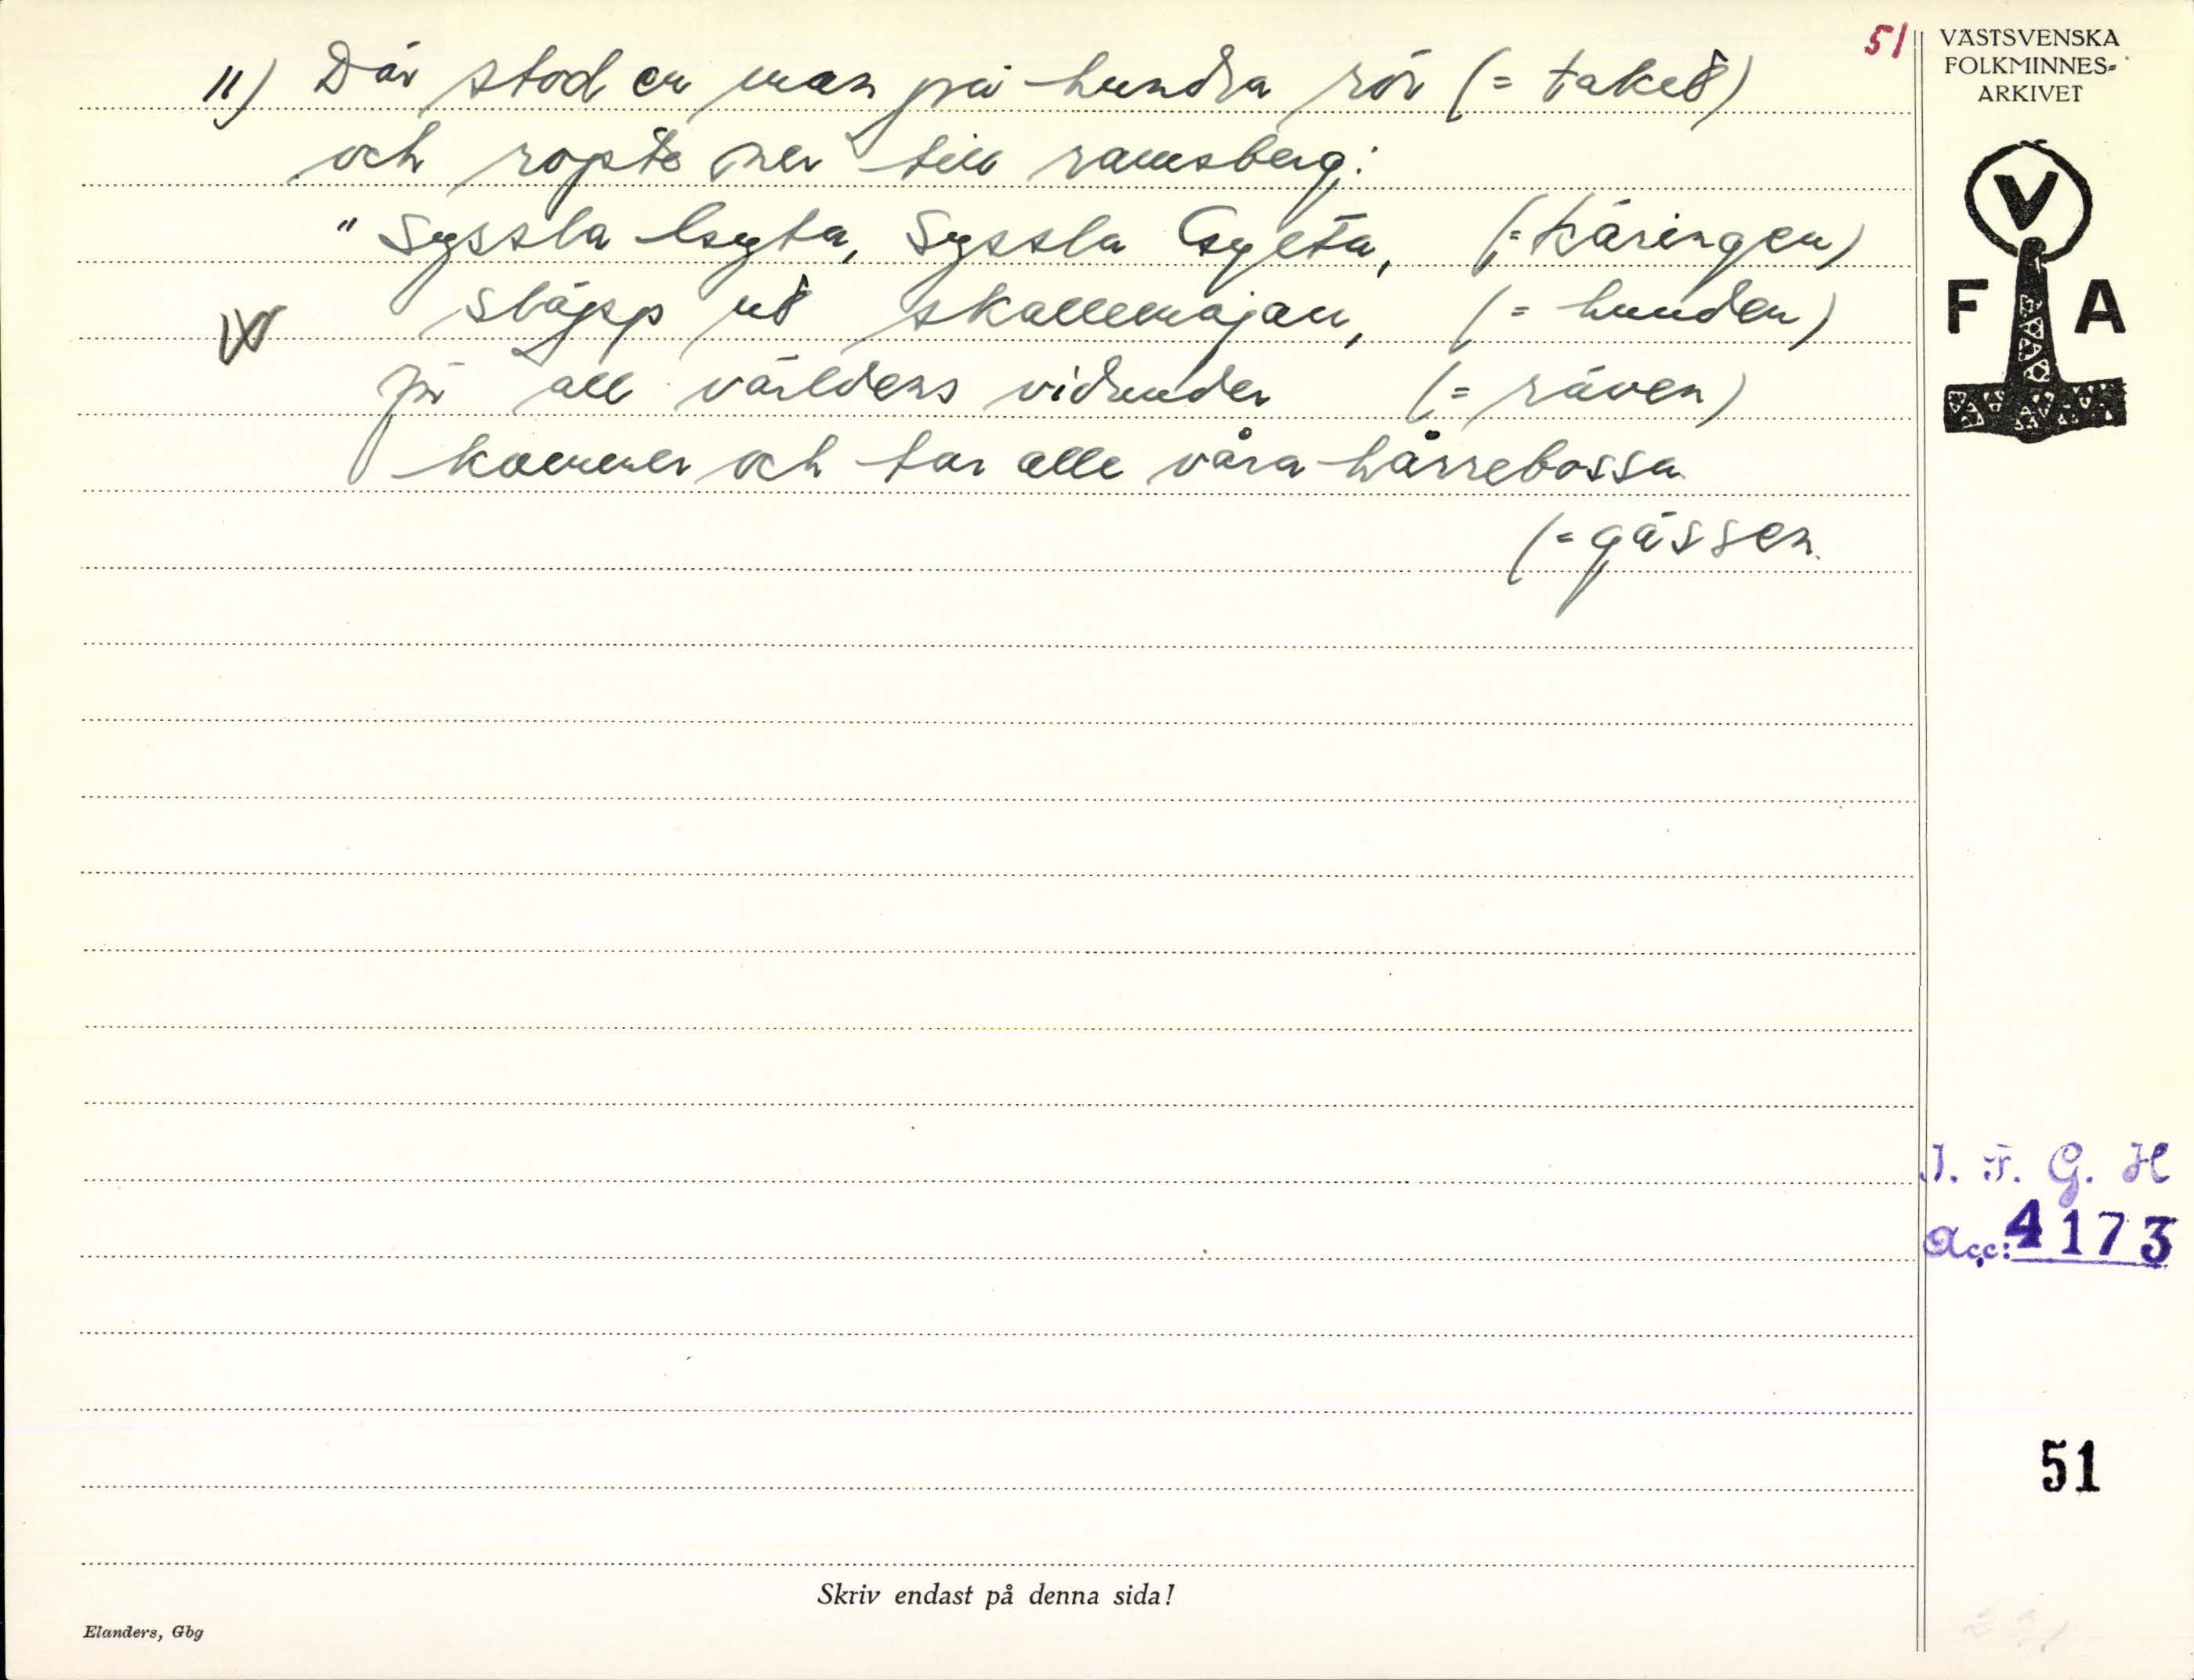 51
VÄSTSVENSKA
FOLKMINNES-
ARKIVET
V
F A
11) Där stod en man på hundra rör (= taket)
och ropte ner till ramsberg:
"Syssla lsyta, Syssla (= käringen)
släpp ut skallemajan, (= hunden)
för all världens vidunder (= räven)
kommer och tar alle våra hårrebossa
(= gässen.
I. F. G. H
Acc: 4173
51
Skriv endast på denna sida!
Elanders, Gbg